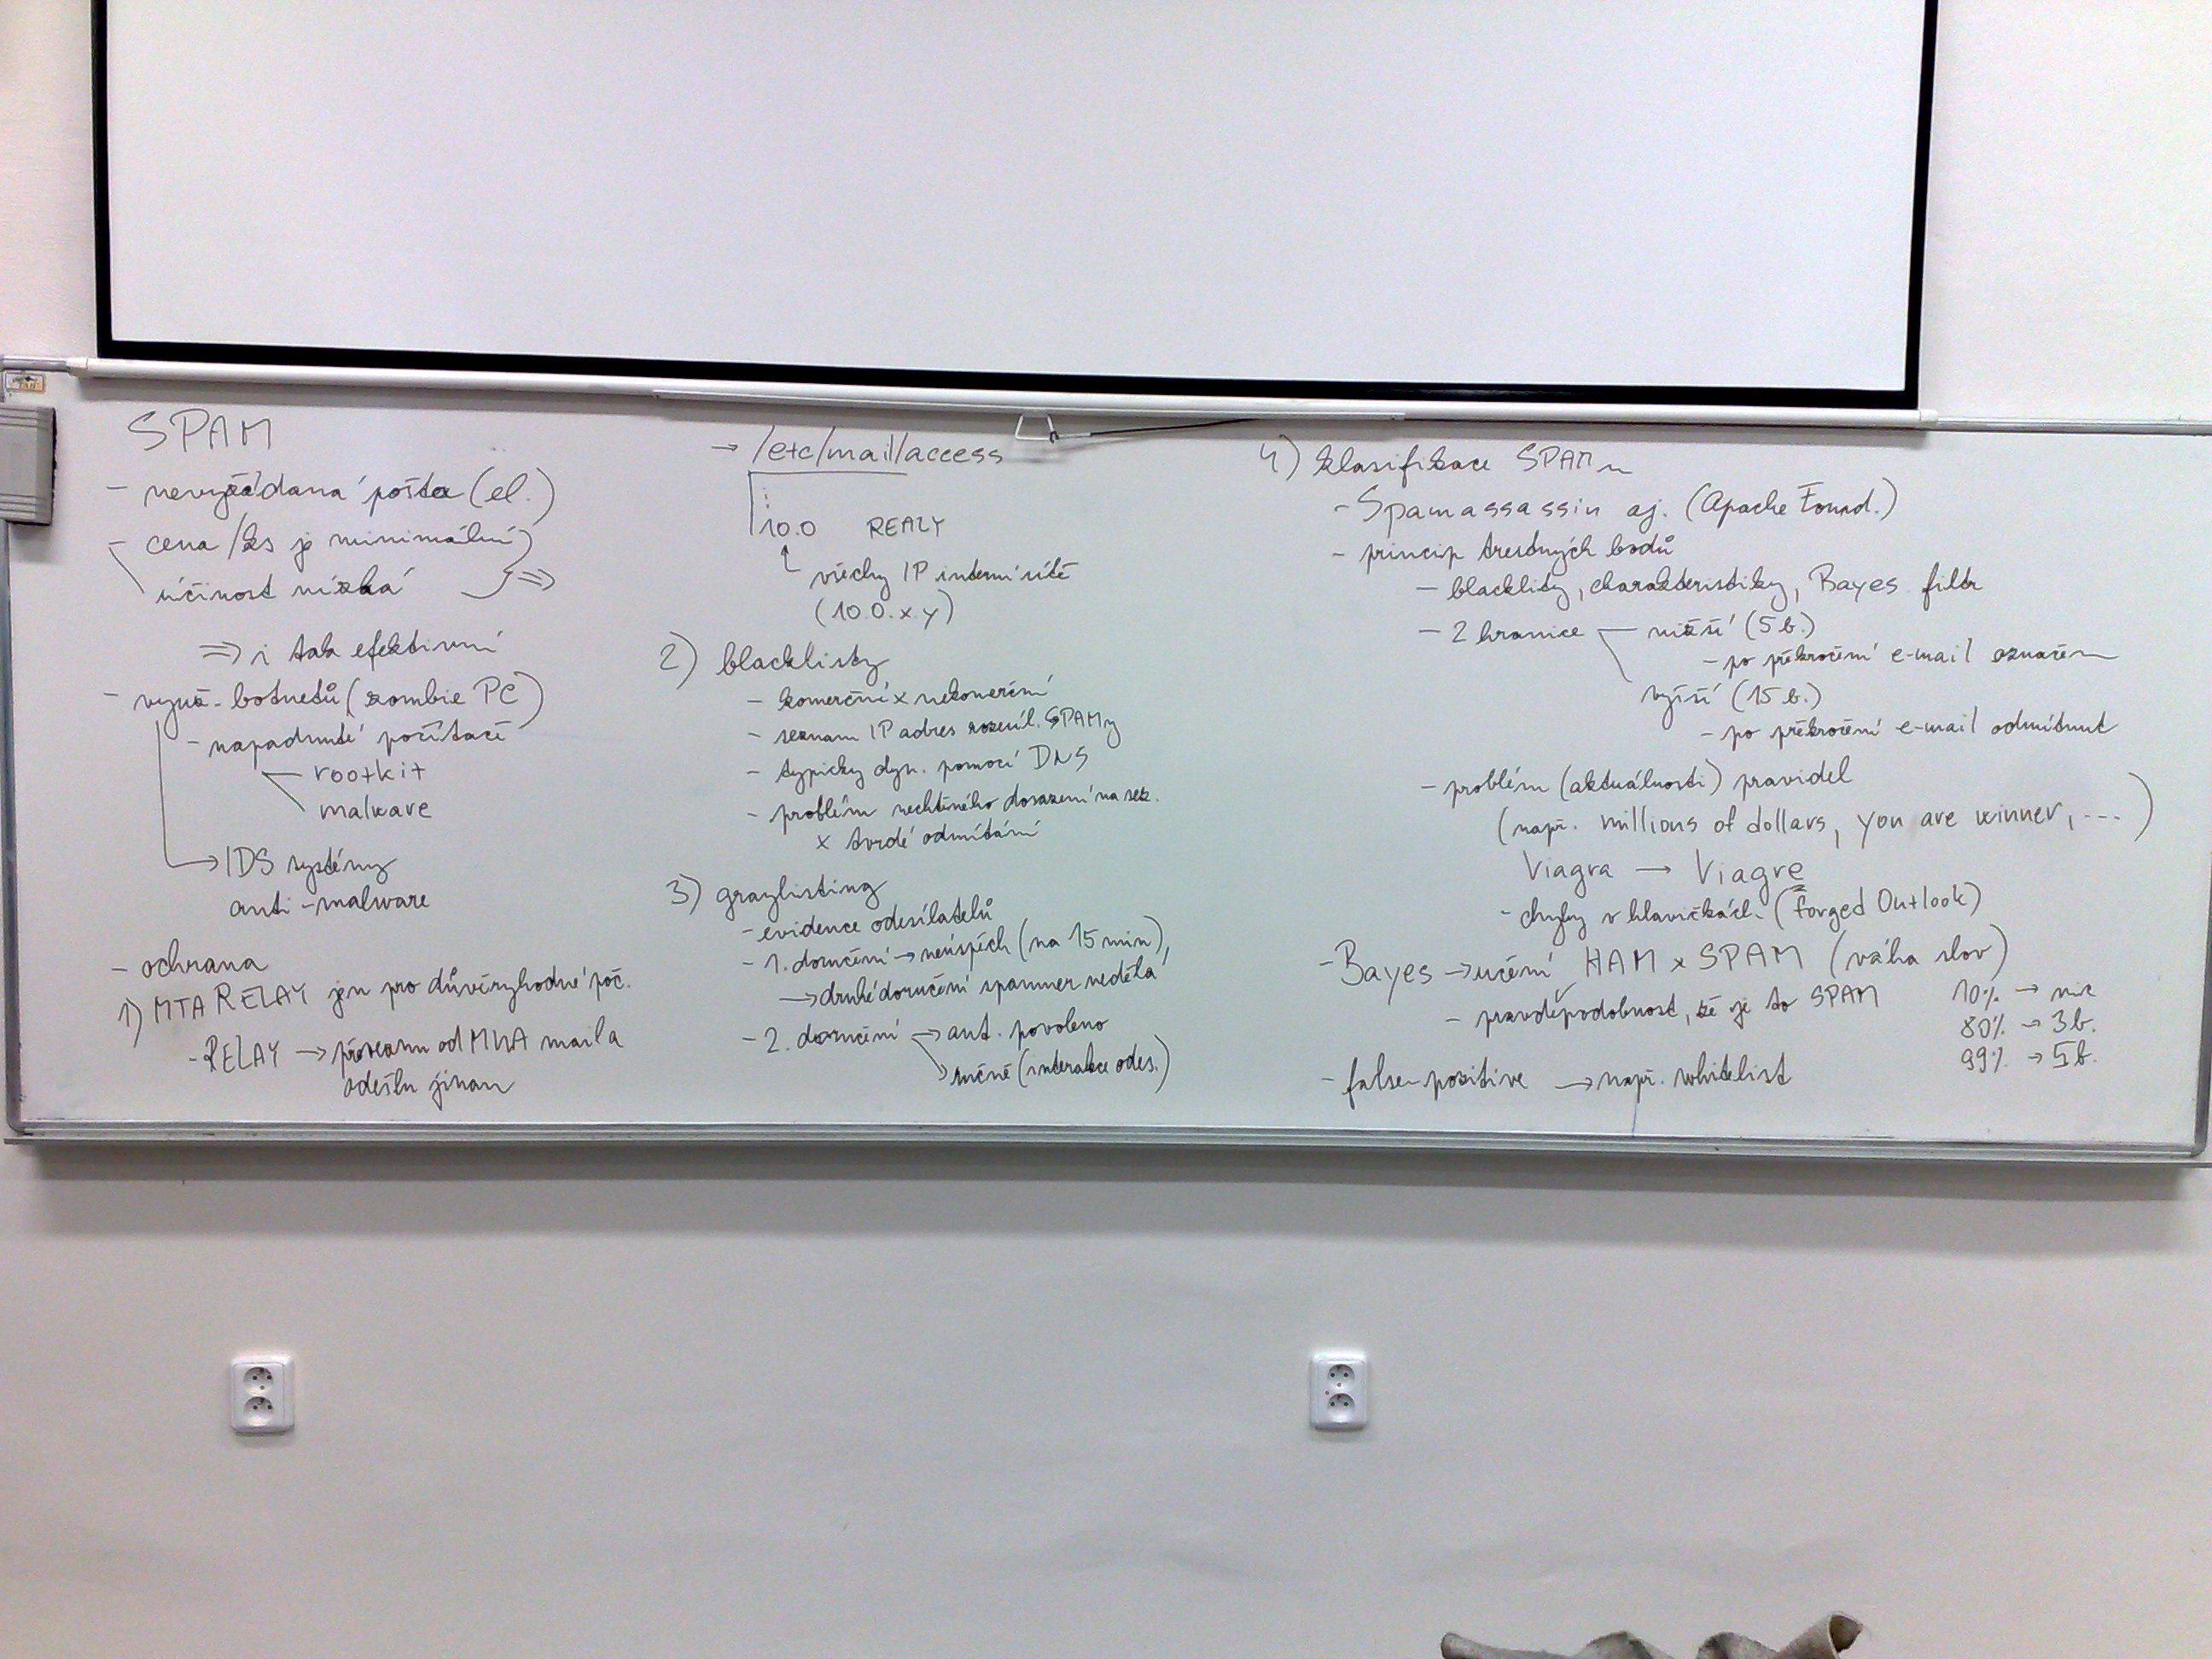 SPAM
- nevyžádaná pošta (el.)
- cena/ks je minimální
účinnost nízká =>
=> i tak efektivní
- využ. botnetů (zombie PC)
- napadnuté počítače
rootkit
malware
→ IDS systémy
anti-malware
- ochrana
1) MTA RELAY jen pro důvěryhodné poč.
- RELAY → převezmu od MUA mail a
odešlu jinam
→ /etc/mail/access
10.0 REALY
všechy IP interní sítě
(10.0.x.y)
2) blacklisty
- komerční x nekomerční
- seznam IP adres rozesíl. SPAMy
- typicky dyn. pomocí DNS
- problém nechtěného dosazení na sez.
x tvrdé odmítání
3) graylisting
- evidence odesílatelů
- 1. doručení → neúspěch (na 15 min),
→ druhé doručení spammer nedělá
- 2. doručení → aut. povoleno
ručně (interakce odes.)
4) klasifikace SPAMu
- Spamassassin aj. (Apache Found.)
- princip trestných bodů
- blacklity, charakteristiky, Bayes filtr
- 2 hranice — nižší (5 b.)
- po překročení e-mail označen
vyšší (15 b.)
- po překročení e-mail odmítnut
- problém (aktuálnosti) pravidel
(např. millions of dollars, you are winner, ...)
Viagra → Viagre
- chyby v hlavičkách (Forged Outlook)
- Bayes → učení HAM x SPAM (váha slov)
- pravděpodobnost, že je to SPAM
10% → nic
80% → 3b.
99% → 5b.
- false-pozitive → např. whitelist